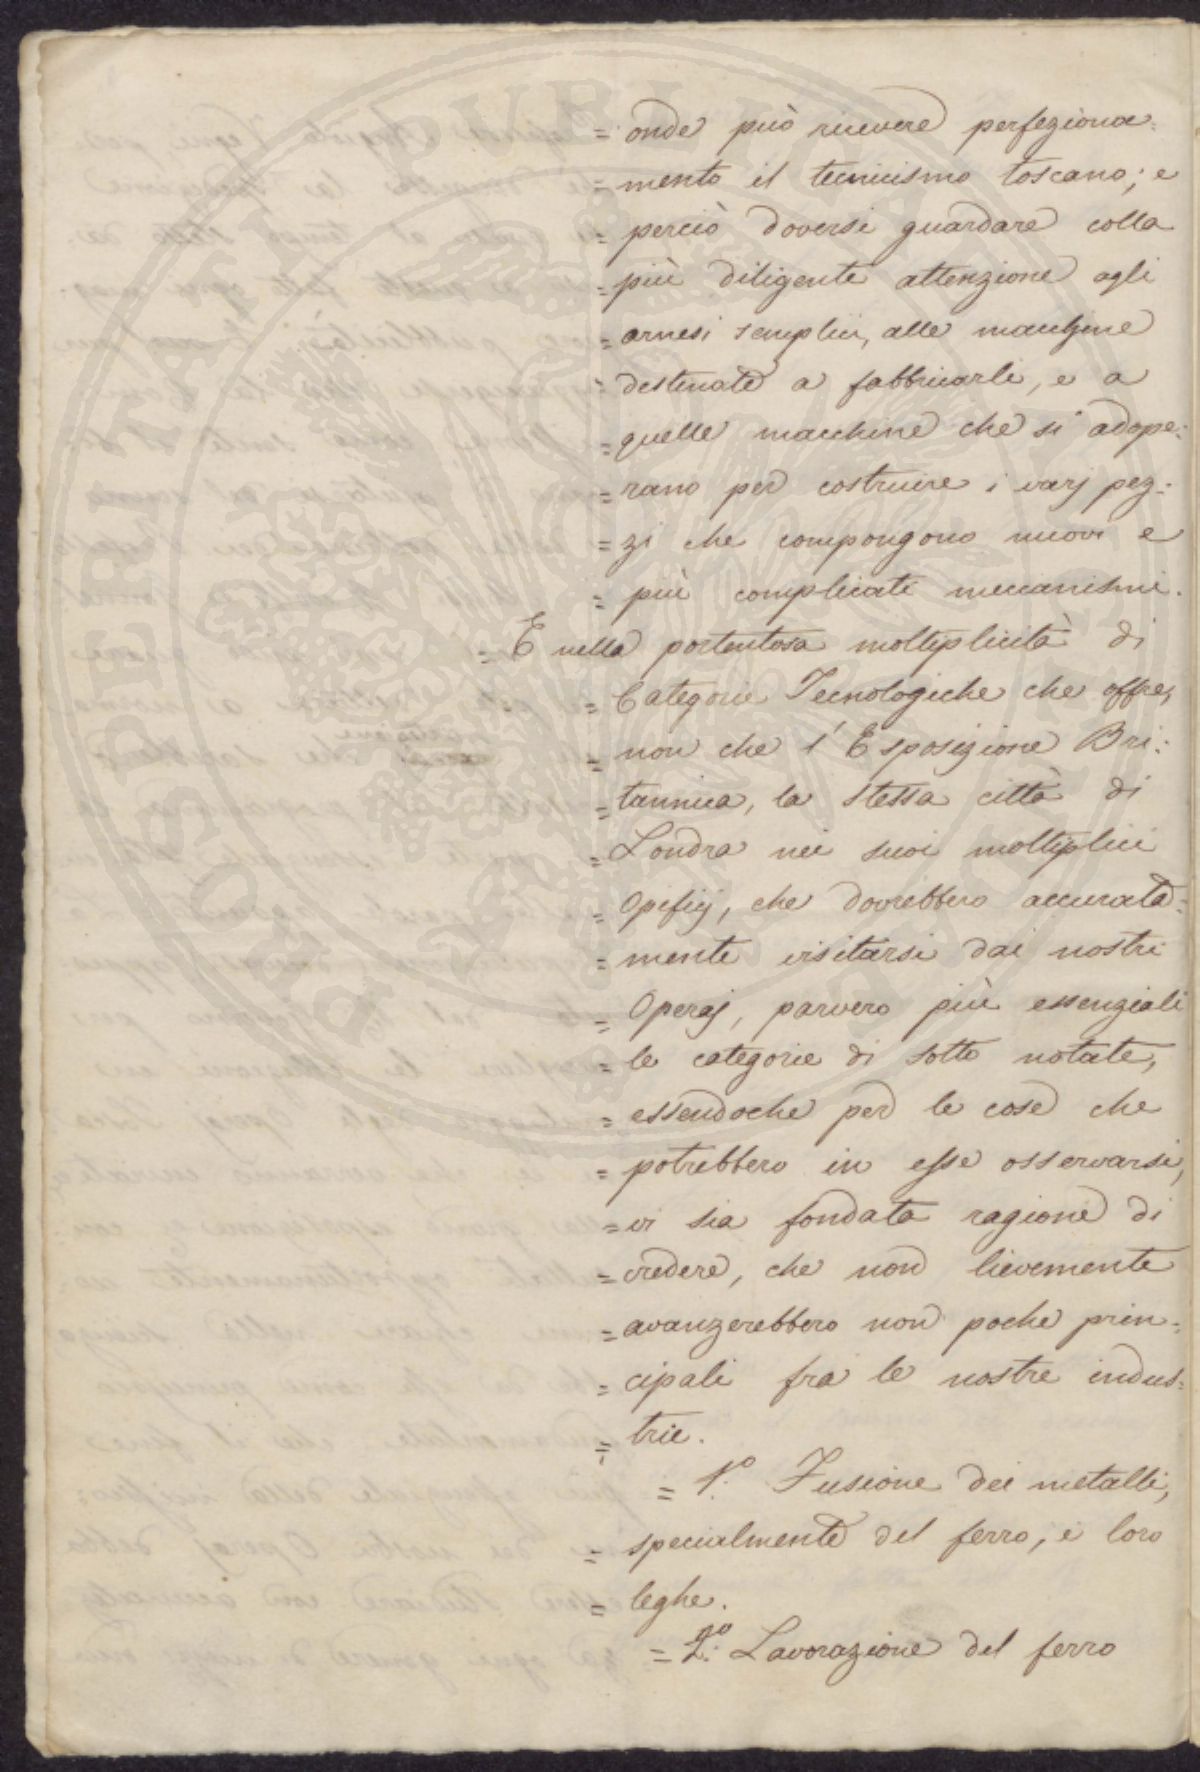 = onde può ricevere perfeziona=
= mento il tecnicismo toscano; e
= perciò doversi guardare colla
= più diligente attenzione agli
= arnesi semplici, alle macchine
= destinate a fabbricarli, e a
= quelle macchine che si adope=
= rano per costruire i varj pez=
= zi che compongono nuovi e
= più complicati meccanismi.
= E nella portentosa moltiplicità di
= Categorie Tecnologiche che offre,
= non che l'Esposizione Bri=
= tannica, la stessa città di
= Londra nei suoi moltiplici
= Opificj, che dovrebbero accurata=
= mente visitarsi dai nostri
= Operaj, parvero più essenziali
= le categorie di sotto notate,
= essendoche per le cose che
= potrebbero in esse osservarsi,
= vi sia fondata ragione di
= credere, che non lievemente
= avanzerebbero non poche prin=
= cipali fra le nostre indus=
= trie.
= 1.o Fusione dei metalli,
= specialmente del ferro, e loro
= leghe.
= 2.o Lavorazione del ferro
PROSPERITATI PUBLICAE AUGENDAE